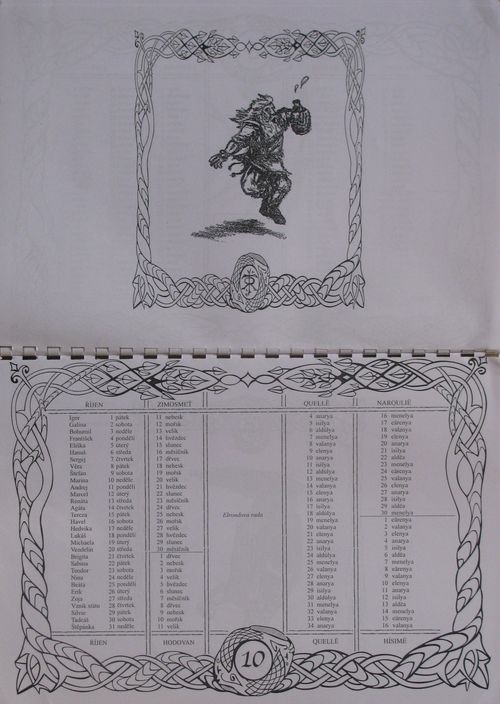 ŘÍJEN ZIMOSMEŤ QUELLË NARQULIË
Igor 1 pátek 11 nebesk 4 anarya 16 menelya
Galina 2 sobota 12 mořsk 5 isilya 17 eärenya
Bohumil 3 neděle 13 velik 6 aldúlya 18 valanya
František 4 pondělí 14 hvězdec 7 menelya 19 elenya
Eliška 5 úterý 15 slunec 8 valanya 20 anarya
Hanuš 6 středa 16 měsíčník 9 elenya 21 isilya
Sergej 7 čtvrtek 17 dřvec 10 anarya 22 aldëa
Věra 8 pátek 18 nebesk 11 isilya 23 menelya
Štefan 9 sobota 19 mořsk 12 aldúlya 24 eärenya
Marina 10 neděle 20 velik 13 menelya 25 valanya
Andrej 11 pondělí 21 hvězdec 14 valanya 26 elenya
Marcel 12 úterý 22 slunec 15 elenya 27 anarya
Renáta 13 středa 23 měsíčník 16 anarya 28 isilya
Agáta 14 čtvrtek 24 dřvec 17 isilya 29 aldëa
Tereza 15 pátek 25 nebesk Elrondova rada 18 aldúlya 30 menelya
Havel 16 sobota 26 mořsk 19 menelya 1 eärenya
Hedvika 17 neděle 27 velik 20 valanya 2 valanya
Lukáš 18 pondělí 28 hvězdec 21 elenya 3 elenya
Michaela 19 úterý 29 slunec 22 anarya 4 anarya
Vendelín 20 středa 30 měsíčník 23 isilya 5 isilya
Brigita 21 čtvrtek 1 dřvec 24 aldúlya 6 aldëa
Sabina 22 pátek 2 nebesk 25 menelya 7 menelya
Teodor 23 sobota 3 mořsk 26 valanya 8 eärenya
Nina 24 neděle 4 velik 27 elenya 9 valanya
Beáta 25 pondělí 5 hvězdec 28 anarya 10 elenya
Erik 26 úterý 6 slunec 29 isilya 11 anarya
Zoja 27 středa 7 měsíčník 30 aldúlya 12 isilya
Vznik státu 28 čtvrtek 8 dřvec 31 menelya 13 aldëa
Silvie 29 pátek 9 nebesk 32 valanya 14 menelya
Tadeáš 30 sobota 10 mořsk 33 elenya 15 eärenya
Štěpánka 31 neděle 11 velik 34 anarya 16 valanya
ŘÍJEN HODOVAN QUELLË HÍSIMË
10